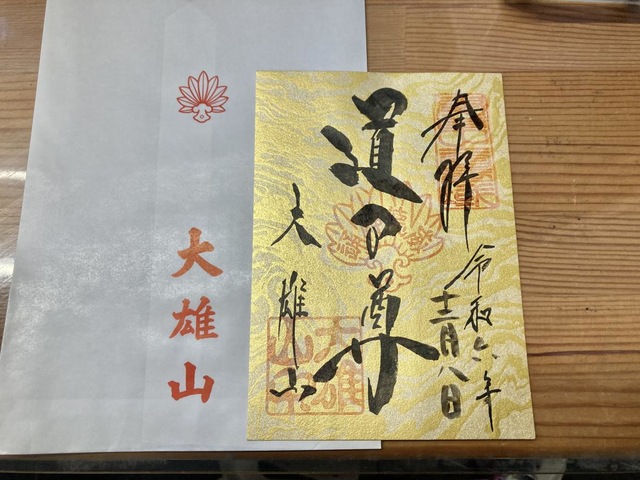 大雄山
奉拝
令和六年
十二月八日
道了尊
大雄山
大雄
山印